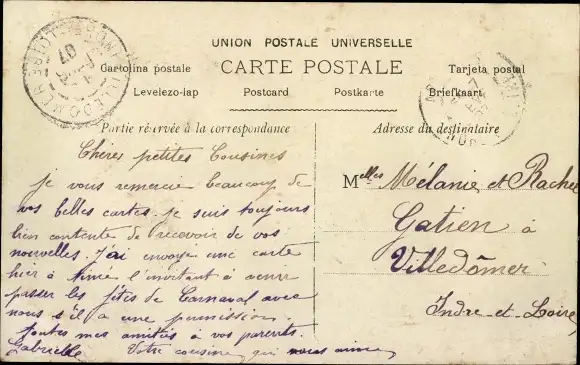 UNION POSTALE UNIVERSELLE
Cartolina postale CARTE POSTALE Tarjeta postal
Levelezo-lap Postcard Postkarte Briefkaart
Partie réservée à la correspondance
Adresse du destinataire
Chères petites Cousines
Je vous remercie beaucoup de
vos belles cartes. je suis toujours
bien contente de recevoir de vos
nouvelles. J'ai envoyé une carte
hier à Aimé l'invitant à venir
passer les fêtes de Carnaval avec
nous s'il a une permission.
Toutes mes amitiés à vos parents.
Gabrielle Votre cousine qui vous aime
Melles Mélanie et Rachel
Gatien à
Villedômer
Indre-et-Loire
VILLEDOMER
07